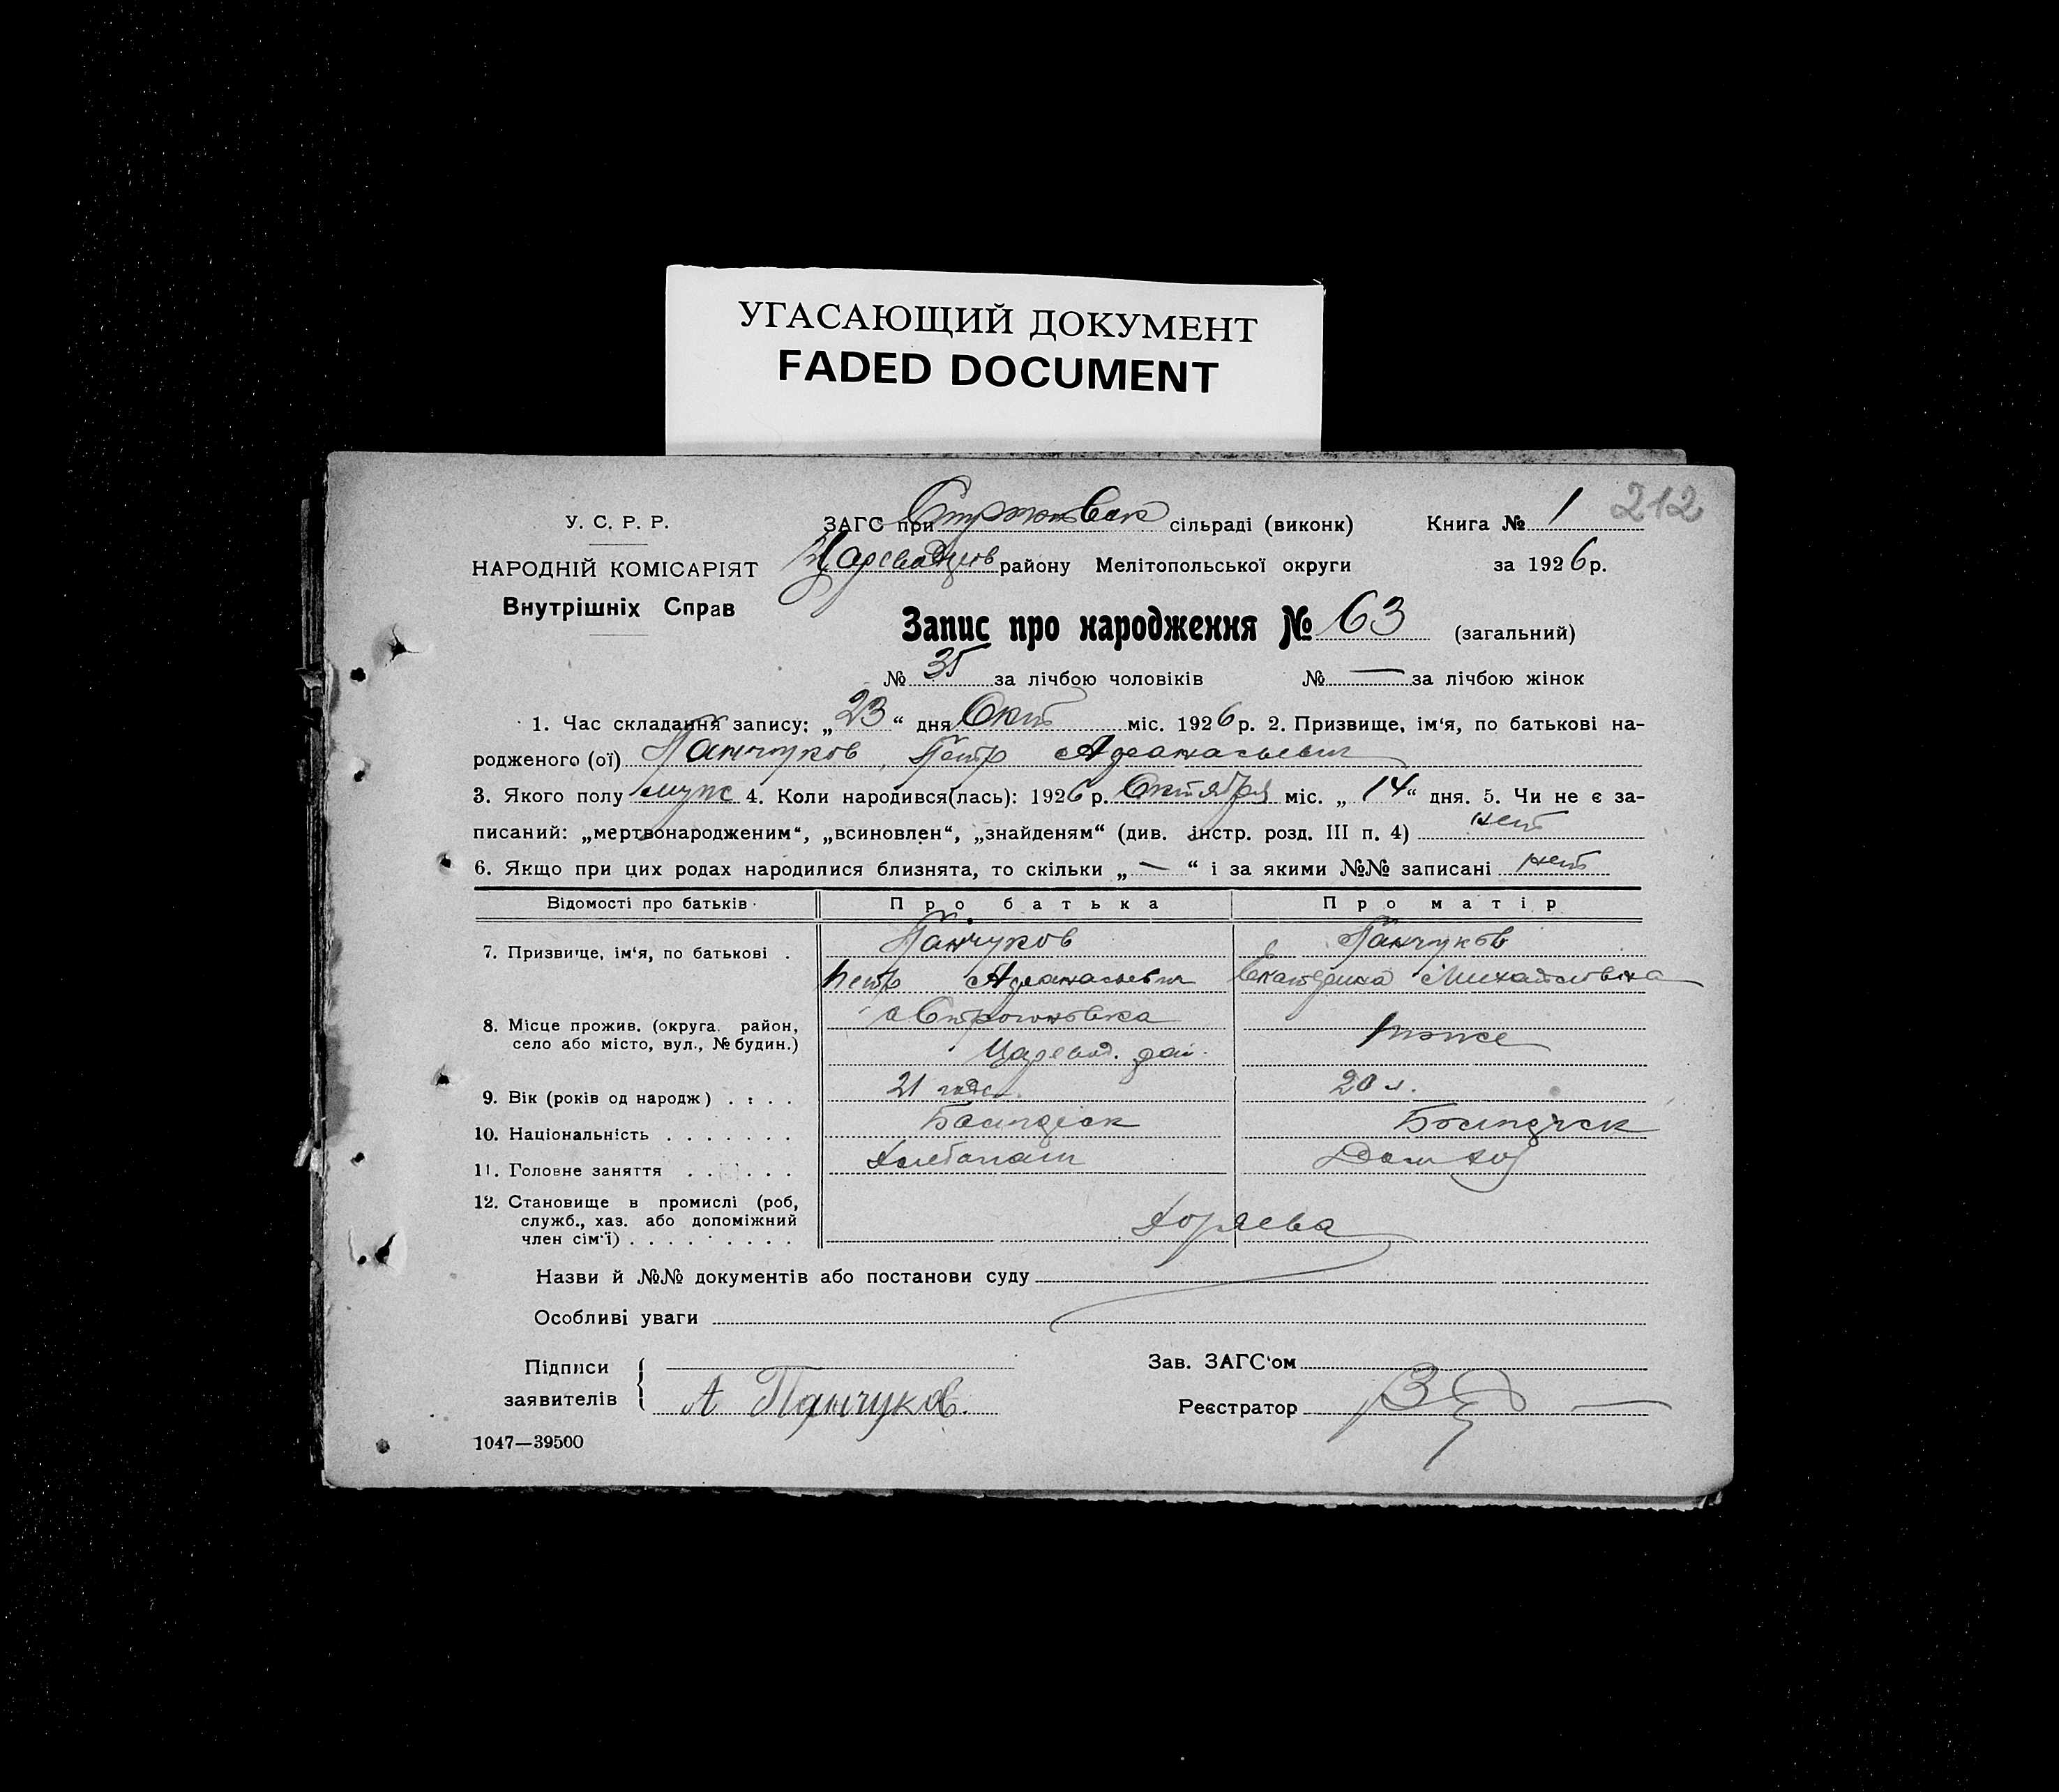 УГАСАЮЩИЙ ДОКУМЕНТ
FADED DOCUMENT
212
У. С. Р. Р.
НАРОДНІЙ КОМІСАРІЯТ
Внутрішніх Справ
ЗАГС при сільраді (виконк) Книга № 1
району Мелітопольської округи за 1926 р.
Запис про народження № 63 (загальний)
№ 35 за лічбою чоловіків № — за лічбою жінок
1. Час складання запису: „23“ дня Окт міс. 1926 р. 2. Призвище, ім‘я, по батькові на-
родженого (ої) Панчуков, Петр Афанасьевич
3. Якого полу муж 4. Коли народився(лась): 1926 р. Октября міс. „14“ дня. 5. Чи не є за-
писаний: „мертвонародженим“, „всиновлен“, „знайденям“ (див. інстр. розд. III п. 4) нет
6. Якщо при цих родах народилися близнята, то скільки „—“ і за якими №№ записані нет
Відомості про батьків Про батька Про матір
7. Призвище, ім‘я, по батькові . Панчуков Панчуков
Петр Афанасьевич Екатерина Михайловна
8. Місце прожив. (округа, район,
село або місто, вул., № будин.)
с Строгоновка
Царевод. рай. тоже
9. Вік (років од народж) . . . . 21 20 л.
10. Національність . . . . . . .
11. Головне заняття . . . . . . Хлебопаш Дом хоз
12. Становище в промислі (роб,
служб., хаз. або допоміжний
член сім‘ї) . . . . . . . . .
Назви й №№ документів або постанови суду
Особливі уваги
Підписи
заявителів
А Панчуков.
Зав. ЗАГС‘ом
Реєстратор
1047—39500